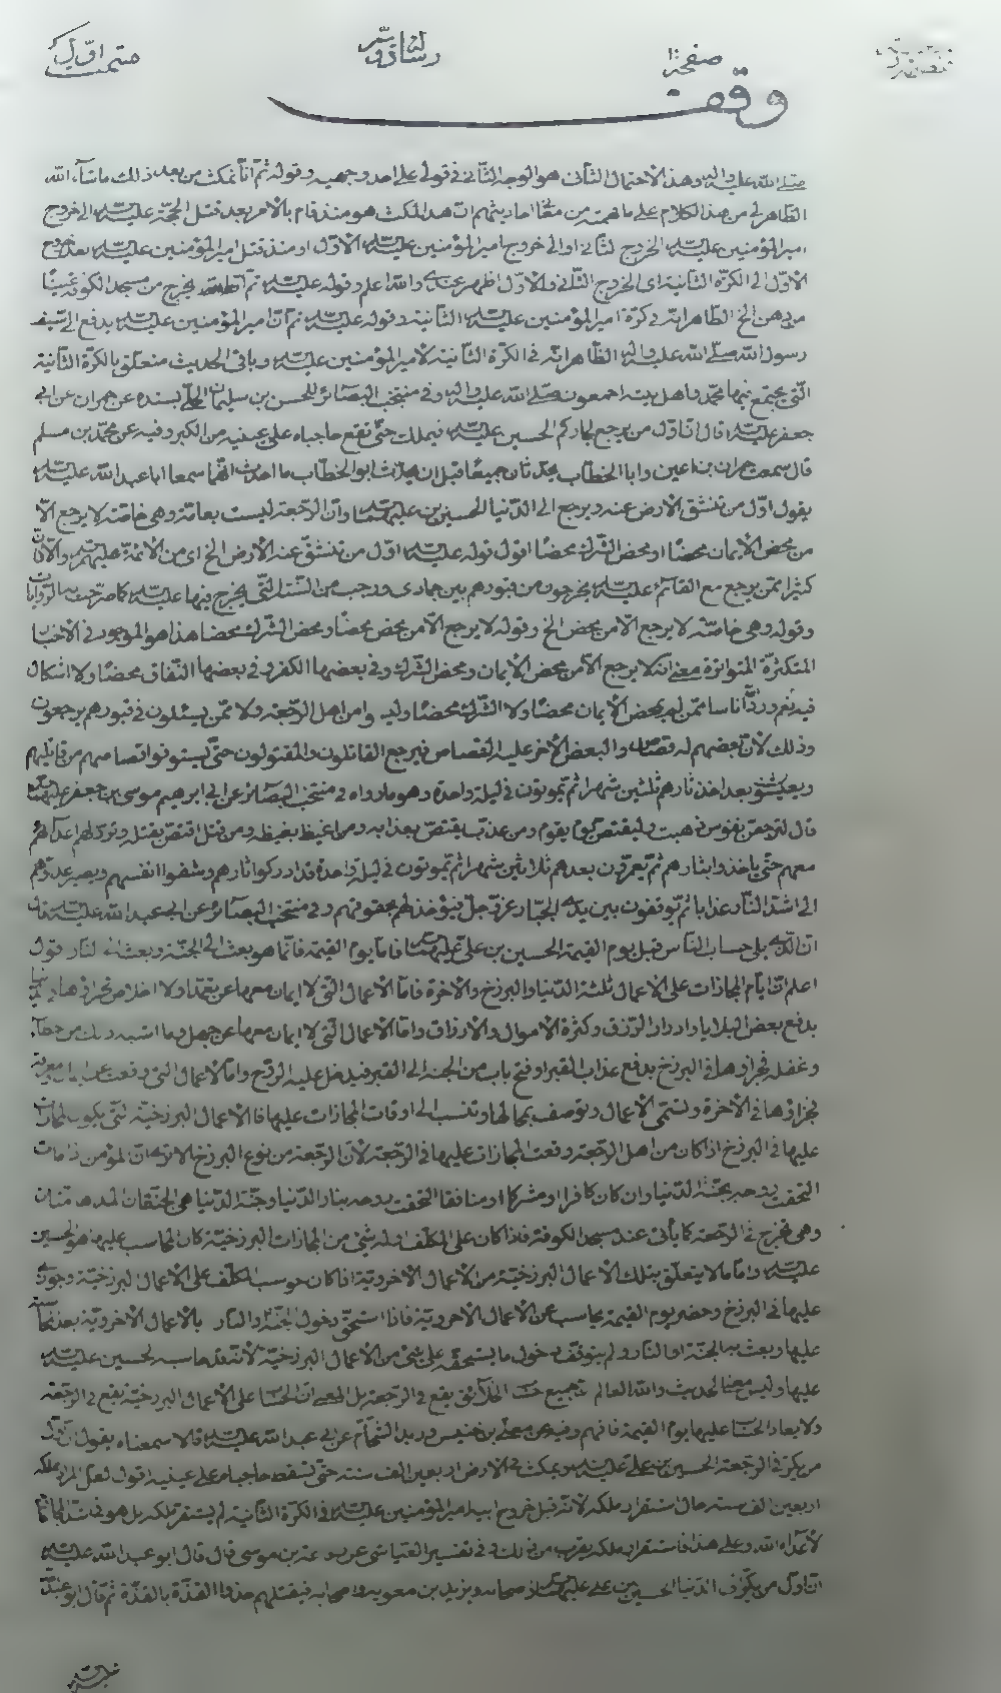 صفحة
وقف
صلى الله عليه وآله وهذا الاحتمال الثاني هو الوجه الثاني في قولي على احد وجهيه وقوله ثم انا نمكث من بعد ذلك ماشاء الله
الظاهر لي من هذا الكلام على ما فهمت من احاديثهم ان هذا المكث هو منذ قام بالامر بعد قتل الحجة عليه السلام الى خروج
امير المؤمنين عليه السلام الخروج الثاني او الى خروج امير المؤمنين عليه السلام الاول او منذ قتل امير المؤمنين عليه السلام بعد خروجه
الاول الى الكرة الثانية اى الخروج الثاني والاول اظهر عندى والله اعلم وقوله عليه السلام ثم ان الله يخرج من مسجد الكوفة عينا
من دهن الخ الظاهر انه في كرة امير المؤمنين عليه السلام الثانية وقوله عليه السلام ثم ان امير المؤمنين عليه السلام يدفع الى سيف
رسول الله صلى الله عليه وآله الظاهر انه في الكرة الثانية لامير المؤمنين عليه السلام وباقي الحديث متعلق بالكرة الثانية
التي يجتمع فيها محمد واهل بيته اجمعون صلى الله عليه وآله وفي منتخب البصائر للحسن بن سليمان الحلي بسنده عن حمران عن ابي
جعفر عليه السلام قال ان اول من يرجع لجاركم الحسين عليه السلام فيملك حتى تقع حاجباه على عينيه من الكبر وفيه عن محمد بن مسلم
قال سمعت حمران بن اعين وابا الخطاب يحدثان جميعا قبل ان يحدث ابو الخطاب ما احدث انهما سمعا ابا عبد الله عليه السلام
يقول اول من تنشق الارض عنه ويرجع الى الدنيا الحسين بن علي عليهما السلام وان الرجعة ليست بعامة وهي خاصة لا يرجع الا
من محض الايمان محضا او محض الشرك محضا اقول قوله عليه السلام اول من تنشق عنه الارض الخ اى من الائمة عليهم السلام والا فان
كثيرا ممن يرجع مع القائم عليه السلام يخرجون من قبورهم بين جمادى ورجب من السنة التي يخرج فيها عليه السلام كما صرحت به الروايات
وقوله وهي خاصة لا يرجع الا من محض الخ وقوله لا يرجع الا من محض محضا ومحض الشرك محضا هذا هو الموجود في الاخبار
المتكثرة المتواترة معنى انه لا يرجع الا من محض الايمان ومحض الشرك وفي بعضها الكفر وفي بعضها النفاق محضا ولا اشكال
فيه نعم ورد ان اناسا ممن لم يمحض الايمان محضا ولا الشرك محضا وليسوا من اهل الرجعة ولا ممن يسئلون في قبورهم يرجعون
وذلك لان بعضهم له قصاص والبعض الاخر عليه القصاص فيرجع القاتلون والمقتولون حتى يستوفوا قصاصهم من قاتليهم
ويعيشون بعد اخذ ثارهم ثلثين شهرا ثم يموتون في ليلة واحدة وهو ما رواه في منتخب البصائر عن ابي ابرهيم موسى بن جعفر عليهما السلام
قال لترجعن نفوس ذهبت وليقتصن يوم يقوم ومن عذب يقتص بعذابه ومن اغيظ بغيظه ومن قتل اقتص بقتله ويرد لهم اعداؤهم
معهم حتى ياخذوا بثارهم ثم يعمرون بعدهم ثلاثين شهرا ثم يموتون في ليلة واحدة قد ادركوا ثارهم وشفوا انفسهم ويصير عدوهم
الى اشد النار عذابا ثم يوقفون بين يدى الجبار عز وجل فيؤخذ لهم بحقوقهم وفي منتخب البصائر عن ابي عبد الله عليه السلام قال
ان الذي يلي حساب الناس قبل يوم القيمة الحسين بن علي عليهما السلام فاما يوم القيمة فانما هو بعث الى الجنة وبعث الى النار اقول
اعلم ان ايام المجازات على الاعمال ثلثة الدنيا والبرزخ والاخرة فاما الاعمال التي لا ايمان معها عن تعمد ولا اخلاص فجزاؤها في الدنيا
بدفع بعض البلايا وادرار الرزق وكثرة الاموال والارزاق واما الاعمال التي لا ايمان معها عن جهل وما اشبه ذلك من خطأ
وغفلة فجزاؤها في البرزخ بدفع عذاب القبر او فتح باب من الجنة الى القبر فيدخل عليه الروح واما الاعمال التي وقعت عن
فجزاؤها في الاخرة وتسمى الاعمال وتوصف بمالها وتنسب الى اوقات المجازات عليها فالاعمال البرزخية التي يكون المجازات
عليها في البرزخ اذا كان من اهل الرجعة وقعت المجازات عليها في الرجعة لان الرجعة من نوع البرزخ الا ترى ان المؤمن اذا مات
التحقت روحه بجنة الدنيا وان كان كافرا او مشركا او منافقا التحقت روحه بنار الدنيا وجنة الدنيا هي الجنتان المدهامتان
وهي تخرج في الرجعة كما يأتي عند مسجد الكوفة فاذا كان على المكلف او له شئ من المجازات البرزخية كان المحاسب عليها هو الحسين
عليه السلام واما ما لا يتعلق بتلك الاعمال البرزخية من الاعمال الاخروية اذا كان حوسب المكلف على الاعمال البرزخية وجوزى
عليها في البرزخ وحضر يوم القيمة يحاسب عن الاعمال الاخروية فاذا استحق دخول الجنة والنار بالاعمال الاخروية بعد المحاسبة
عليها وبعث به الى الجنة او النار ولم يتوقف دخول ما يستحقه على شئ من الاعمال البرزخية لانه قد حاسبه الحسين عليه السلام
عليها وليس معنى الحديث والله العالم جميع حساب الخلائق يقع في الرجعة بل المعنى ان الحساب على الاعمال البرزخية يقع في الرجعة
ولا يعاد الحساب عليها يوم القيمة فافهم وفيه عن معلى بن خنيس وزيد الشحام عن ابي عبد الله عليه السلام قالا سمعناه يقول ان اول
من يكر في الرجعة الحسين بن علي عليه السلام ويمكث في الارض اربعين الف سنة حتى تسقط حاجباه على عينيه اقول لعل المراد بملكه
اربعين الف سنة حال استقرار ملكه لانه قبل خروج ابيه امير المؤمنين عليه السلام في الكرة الثانية لم يستقر ملكه بل هو في
لاعداء الله وعلى هذا فاستقرار ملكه يقرب من ذلك وفي تفسير العياشي عن رفاعة بن موسى قال قال ابو عبد الله عليه السلام
ان اول من يكر الى الدنيا الحسين بن علي عليهما السلام واصحابه ويزيد بن معوية واصحابه فيقتلهم حذو القذة بالقذة ثم قال ابو عبد الله